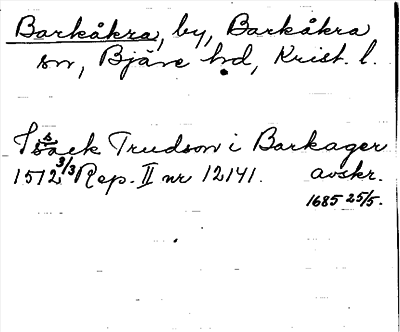 Barkåkra, by, Barkåkra
sn, Bjäre hd, Krist. l.
Issack Trudson i Barkager
1512 3/3 Rep. II nr 12141. avskr.
1685 25/5.